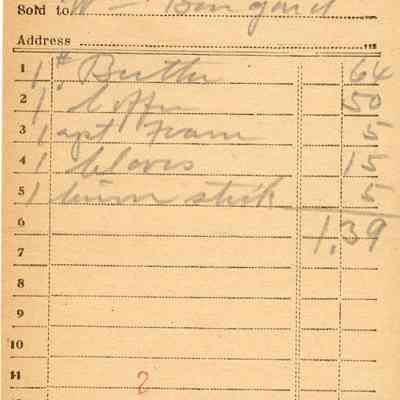 Sold to W Bongard
Address 115
1 1 # Butter 64
2 1 Coffee 50
3 1 5
4 1 Cloves 15
5 1 stick 5
6 1.39
7
8
9
10
11 2